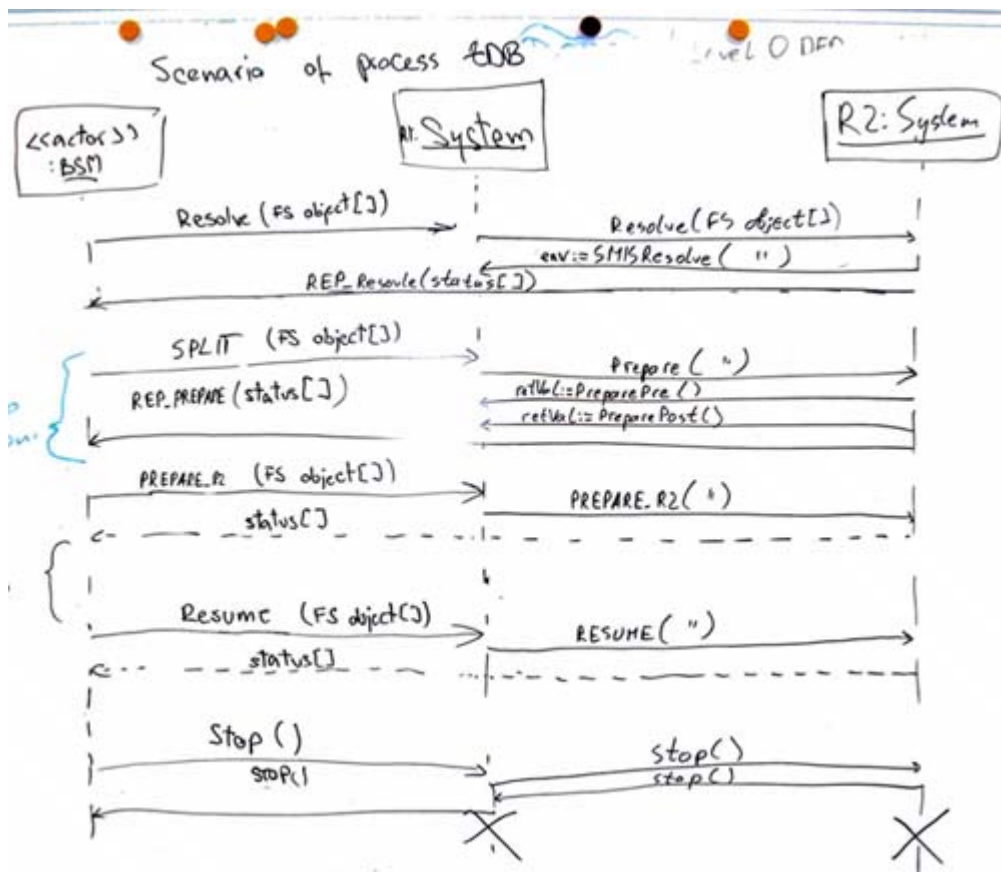 Scenario of process tDB
Level 0 DFD
<<actor>>
:BSM
R1: System
R2: System
Resolve (FS object[])
Resolve (FS object[])
env:= SMISResolve ( " )
REP_Resovle(status[])
SPLIT (FS object[])
Prepare ( " )
REP_PREPARE (status[])
retVal:=PreparePre()
retVal:=PreparePost()
PREPARE_R2 (FS object[])
PREPARE_R2( " )
status[]
Resume (FS object[])
RESUME( " )
status[]
Stop ()
stop()
STOP()
stop()